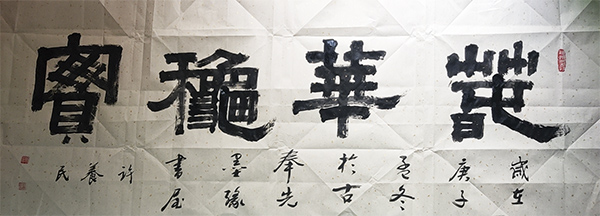 萅華龝實
歲在庚子孟冬於古奉先墨緣書屋許養民